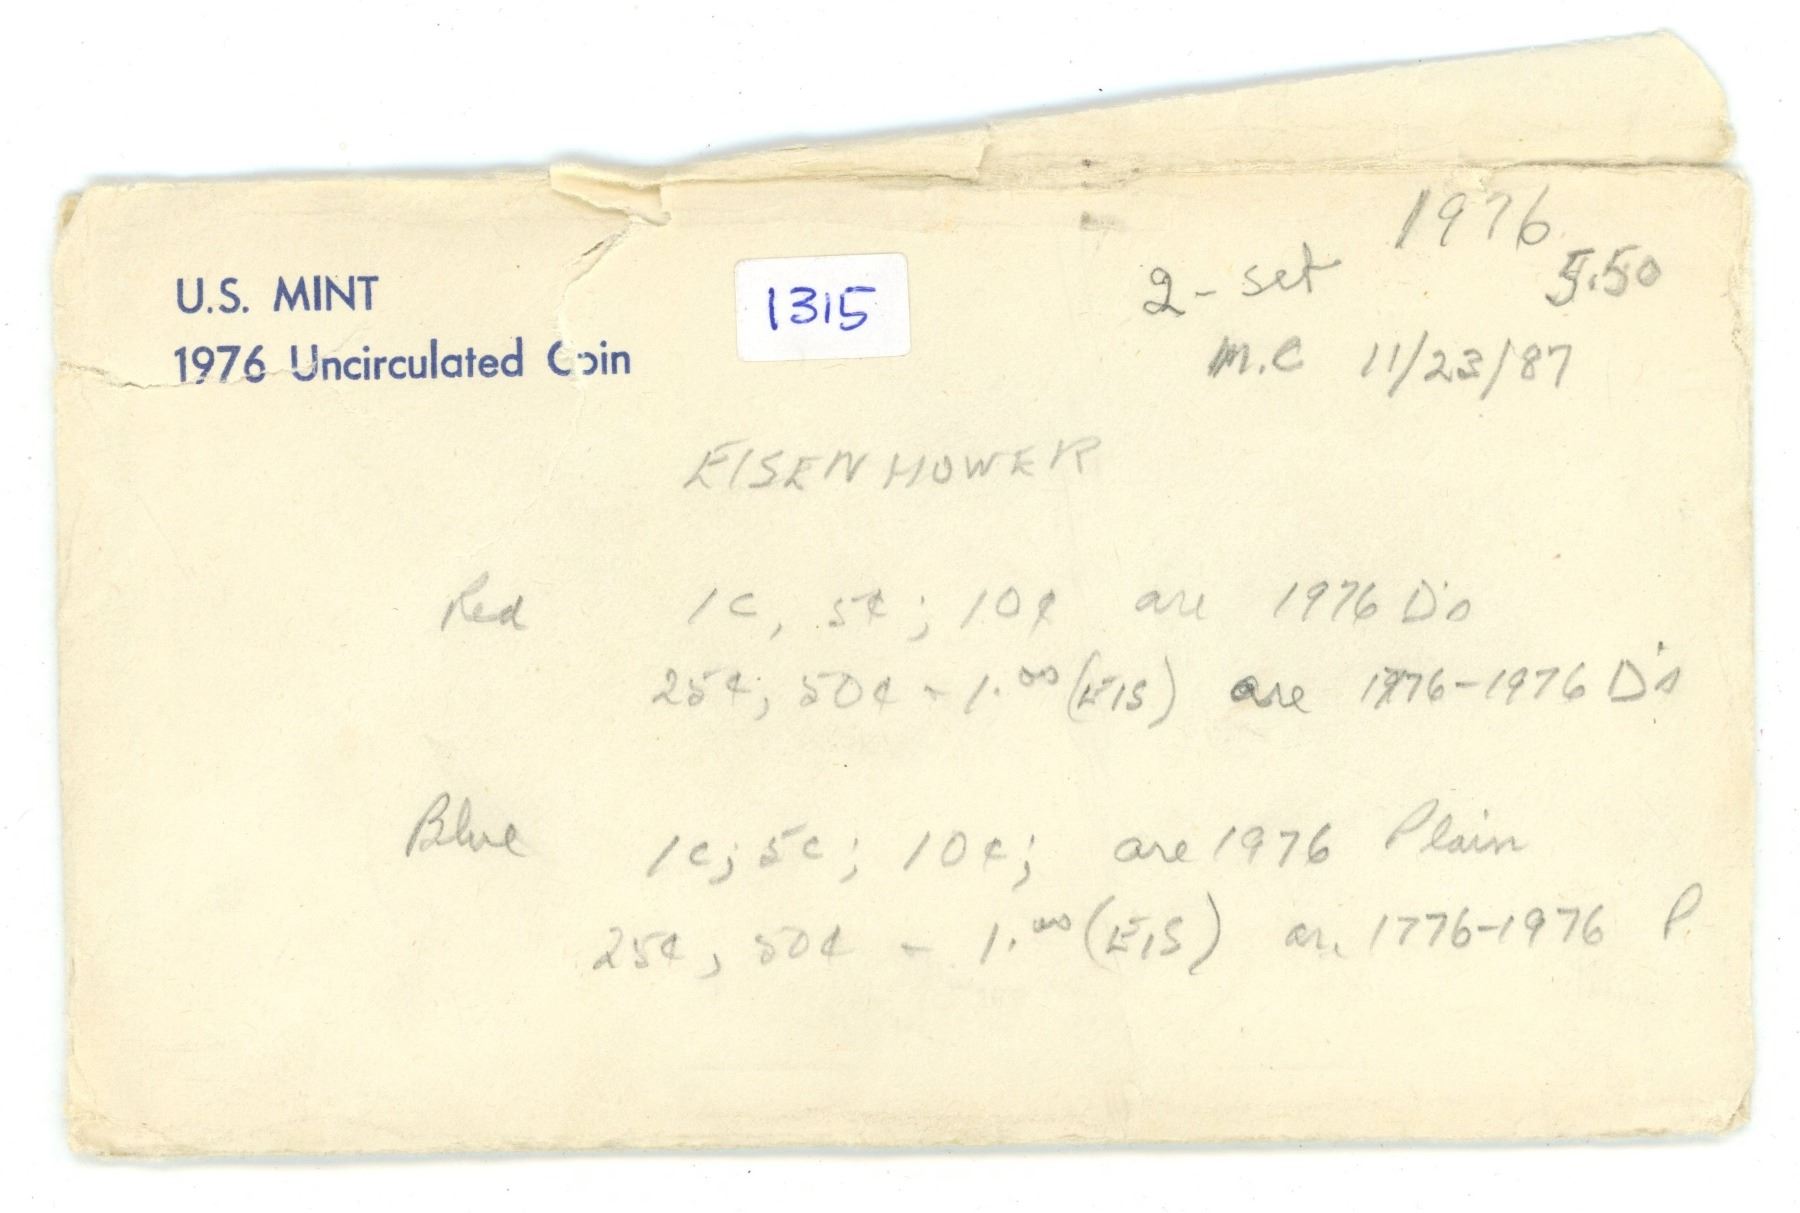 U.S. MINT
1976 Uncirculated Coin
1315
1976
2- set 5.50
M.C 11/23/87
EISENHOWER
Red 1c, 5¢; 10¢ are 1976 D's
25¢; 50¢ - 1.00 (EIS) are 1776-1976 D's
Blue 1c; 5c; 10¢; are 1976 Plain
25¢, 50¢ - 1.00 (EIS) are 1776-1976 P.